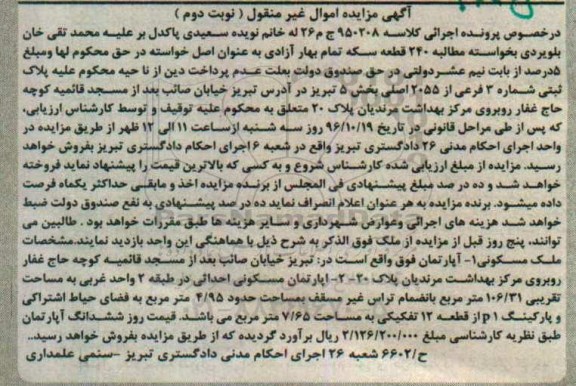 آگهی مزایده اموال غیر منقول ( نوبت دوم )
درخصوص پرونده اجرائی کلاسه ۹۵۰۳۰۸ ج م۲۶ له خانم نویده سعیدی پاکدل بر علیه محمد تقی خان
بلوبردی بخواسته مطالبه ۲۴۰ قطعه سکه تمام بهار آزادی به عنوان اصل خواسته در حق محکوم لها ومبلغ
۵درصد از بابت نیم عشردولتی در حق صندوق دولت بعلت عدم پرداخت دین از نا حیه محکوم علیه پلاک
ثبتی شماره ۳ فرعی از ۲۰۵۵ اصلی بخش ۵ تبریز در آدرس تبریز خیابان صائب بعد از مسجد قائمیه کوچه
حاج غفار روبروی مرکز بهداشت مرندیان پلاک ۲۰ متعلق به محکوم علیه توقیف و توسط کارشناس ارزیابی،
که پس از طی مراحل قانونی در تاریخ ۹۶/۱۰/۱۹ روز سه شنبه ازساعت ۱۱ الی ۱۲ ظهر از طریق مزایده در
واحد اجرای احکام مدنی ۲۶ دادگستری تبریز واقع در شعبه ۶ اجرای احکام دادگستری تبریز بفروش خواهد
رسید. مزایده از مبلغ ارزیابی شده کارشناس شروع و به کسی که بالاترین قیمت را پیشنهاد نماید فروخته
خواهد شد و ده در صد مبلغ پیشنهادی فی المجلس از برنده مزایده اخذ و مابقی حداکثر یکماه فرصت
داده میشود. برنده مزایده به هر عنوان اعلام انصراف نماید ده در صد پیشنهادی به نفع صندوق دولت ضبط
خواهد شد هزینه های اجرائی وعوارض شهرداری و سایر هزینه ها طبق مقررات خواهد بود . طالبین می
توانند، پنج روز قبل از مزایده از ملک فوق الذکر به شرح ذیل با هماهنگی این واحد بازدید نمایند.مشخصات
ملک مسکونی۱- آپارتمان فوق واقع است در: تبریز خیابان صائب بعد از مسجد قائمیه کوچه حاج غفار
روبروی مرکز بهداشت مرندیان پلاک ۲۰-۲- اپارتمان مسکونی احداثی در طبقه ۲ واحد غربی به مساحت
تقریبی ۱۰۶/۳۱ متر مربع بانضمام تراس غیر مسقف بمساحت حدود ۴/۹۵ متر مربع به فضای حیاط اشتراکی
و پارکینگ p۱ از قطعه ۱۲ تفکیکی به مساحت ۷/۶۵ متر مربع می باشد. قیمت روز ششدانگ آپارتمان
طبق نظریه کارشناسی مبلغ ۲/۱۲۶/۲۰۰/۰۰۰ ریال برآورد گردیده که از طریق مزایده بفروش خواهد رسید..
ح/۶۶۰۲ شعبه ۲۶ اجرای احکام مدنی دادگستری تبریز -سنمی علمداری